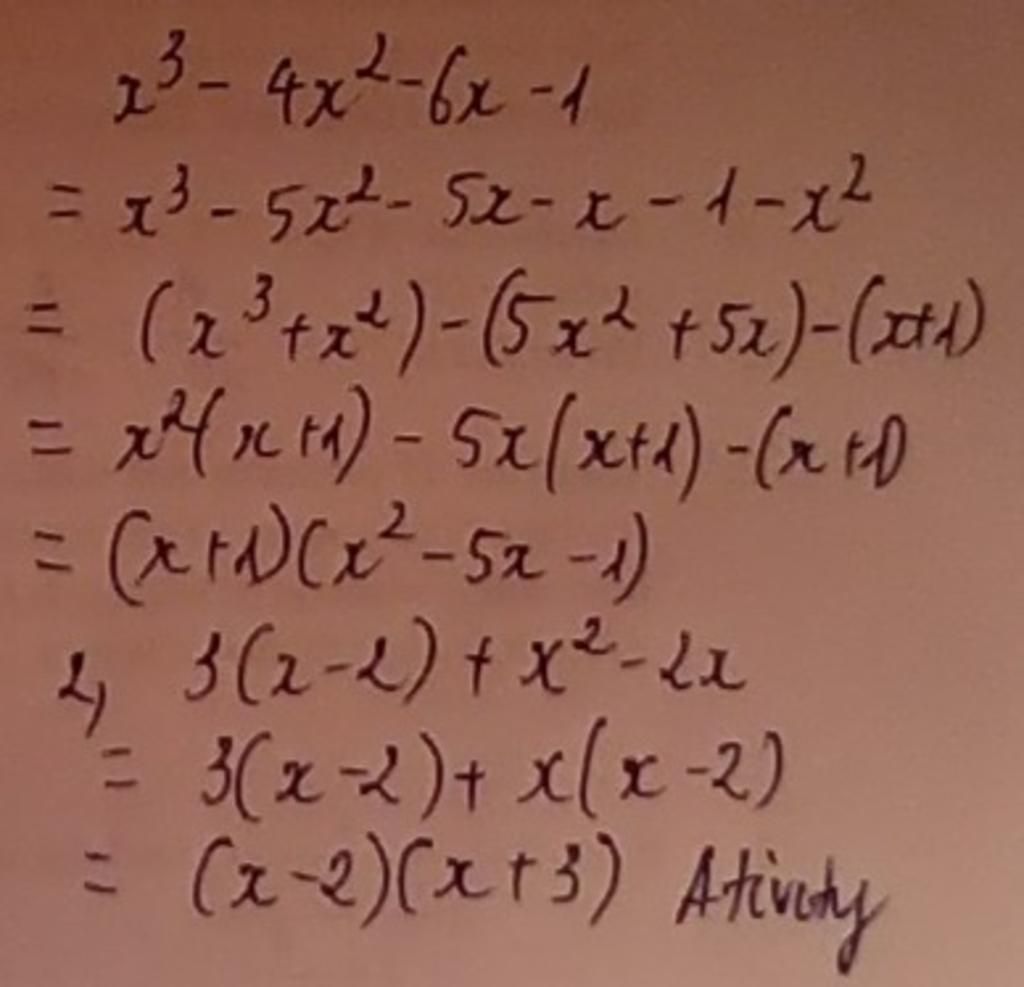 x³ - 4x² - 6x - 1
= x³ - 5x² - 5x - x - 1 - x²
= (x³ + x²) - (5x² + 5x) - (x+1)
= x²(x+1) - 5x(x+1) - (x+1)
= (x+1)(x² - 5x - 1)
2, 3(x-2) + x² - 2x
= 3(x-2) + x(x-2)
= (x-2)(x+3) Ativity